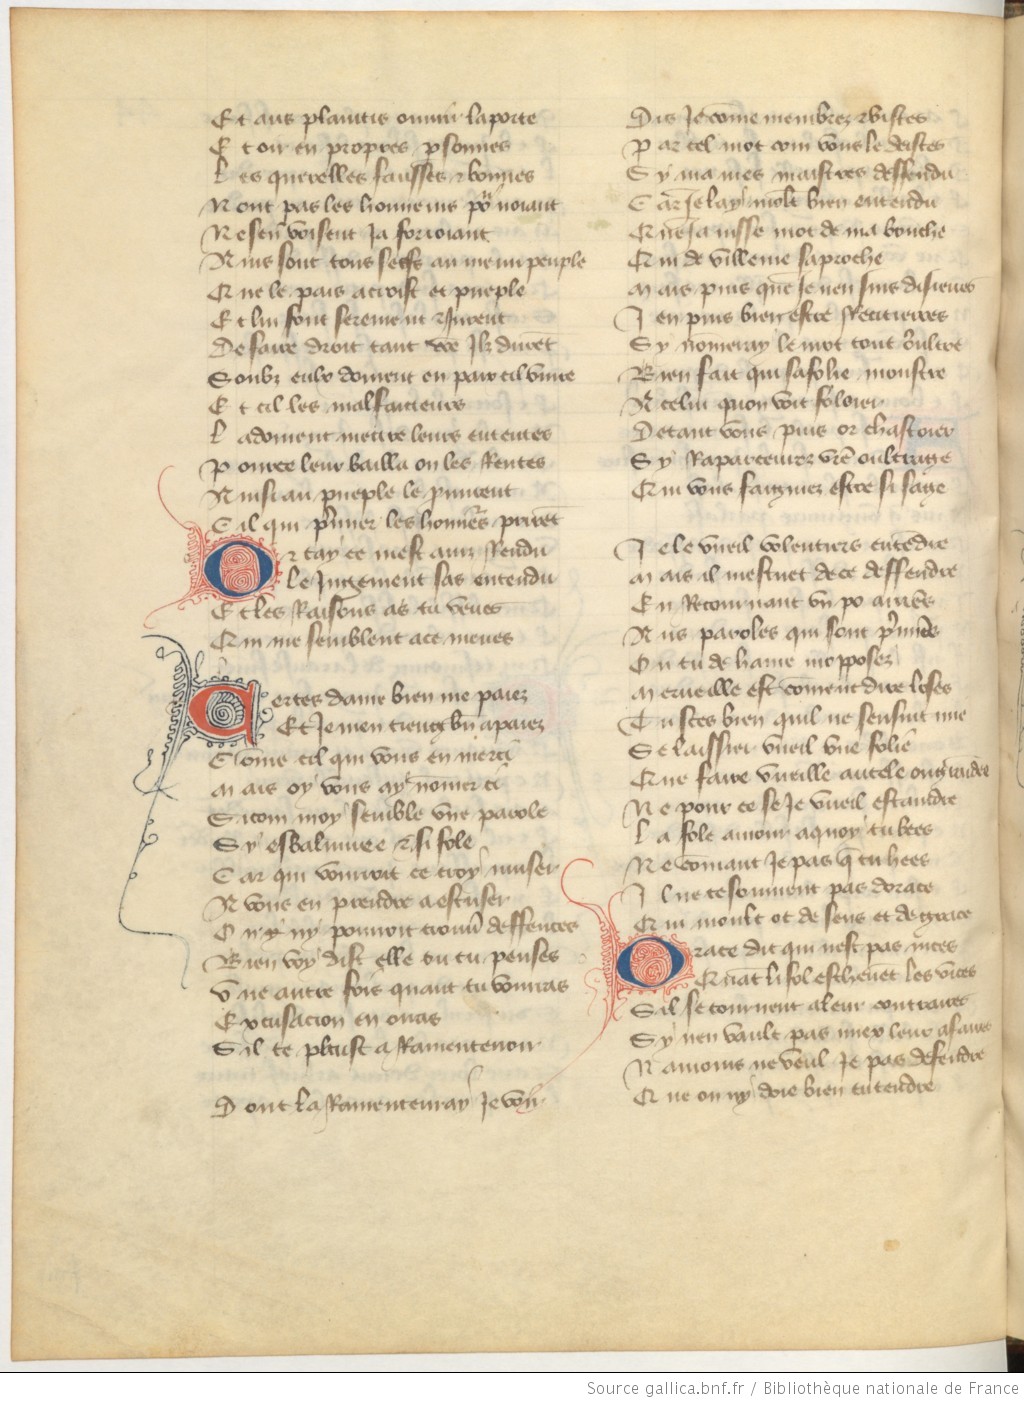 Et aus plaintis ouurir la porte
Et oir en propres psonnes
Les querelles fausses & bonnes
Nont pas les honneurs po noiant
Ne sen voisent ja foruoiant
Ains sont tous serfs au menu peuple
Et ne le pais acroist et pueple
Et lui font serement & Jurent
De faire droit tant come Ilz durēt
Soubz eulx doiuent en paix cil viure
Et cil les malfaicteurs
La doiuent mectre leurs ententes
Pource leur bailla on les Rentes
Ainsi au pueple le promirent
Cil qui pmier les honneurs prirēt
Or tay ce mest auiz Rendu
Le Jugement las entendu
Et les Raisons as tu veues
Qui me semblent a ce meues
Certes dame bien me paiez
Et Je men tieng bn apaiez
Cōme cil qui vous en mercy
Mais oy vous ay nomer cy
Si com moy semble vne parole
Sy esbaluuree & si fole
Car qui vouldroit ce croy muser
A vous en prendre a escuser
On ny pourroit trouuer deffences
Bien voy dist elle ou tu penses
Vne autre fois quant tu vourras
Excusacion en orras
Sil te plaist a Ramenteuoir
Dont la Ramenteuray Je voir
Dis Je cōme membrez & vistes
Par tel mot com vous le deistes
Sy ma mes maistres deffendu
Car Je lay molt bien entendu
Que Ja nisse mot de ma bouche
Qui de villenie saproche
Mais puis que Je nen suis disieres
Jen puis bien estre Recitierres
Sy nomeray le mot tout oultre
Bien fait qui sa folie monstre
A celui quon voit foloier
De tant vous puis or chastoier
Sy Raparceurez vrē oultrage
Qui vous faigniez estre si sage
Je le vueil volentiers entēdre
Mais il mestuet de ce deffendre
En Retournant vn po arriēs
Aus paroles qui sont pmiēs
Ou tu de haine mopposez
Merueille est cōment dire loses
Tu sces bien quil ne sensuit mie
Se laissier vueil vne folie
Que faire vueille autele ou greindre
Ne pour ce se Je vueil estaindre
La fole amour a quoy tu bees
Ne cōmant Je pas q̄ tu hees
Il ne te souuient pas dorace
Qui moult ot de sens et de grace
Orace dit qui nest pas nices
Quāt li fol eschieuet les vices
Sil se tournent a leur contraires
Sy nen vault pas mieux leur afaires
Namours ne vueil Je pas defendre
Que on ny doie bien entendre